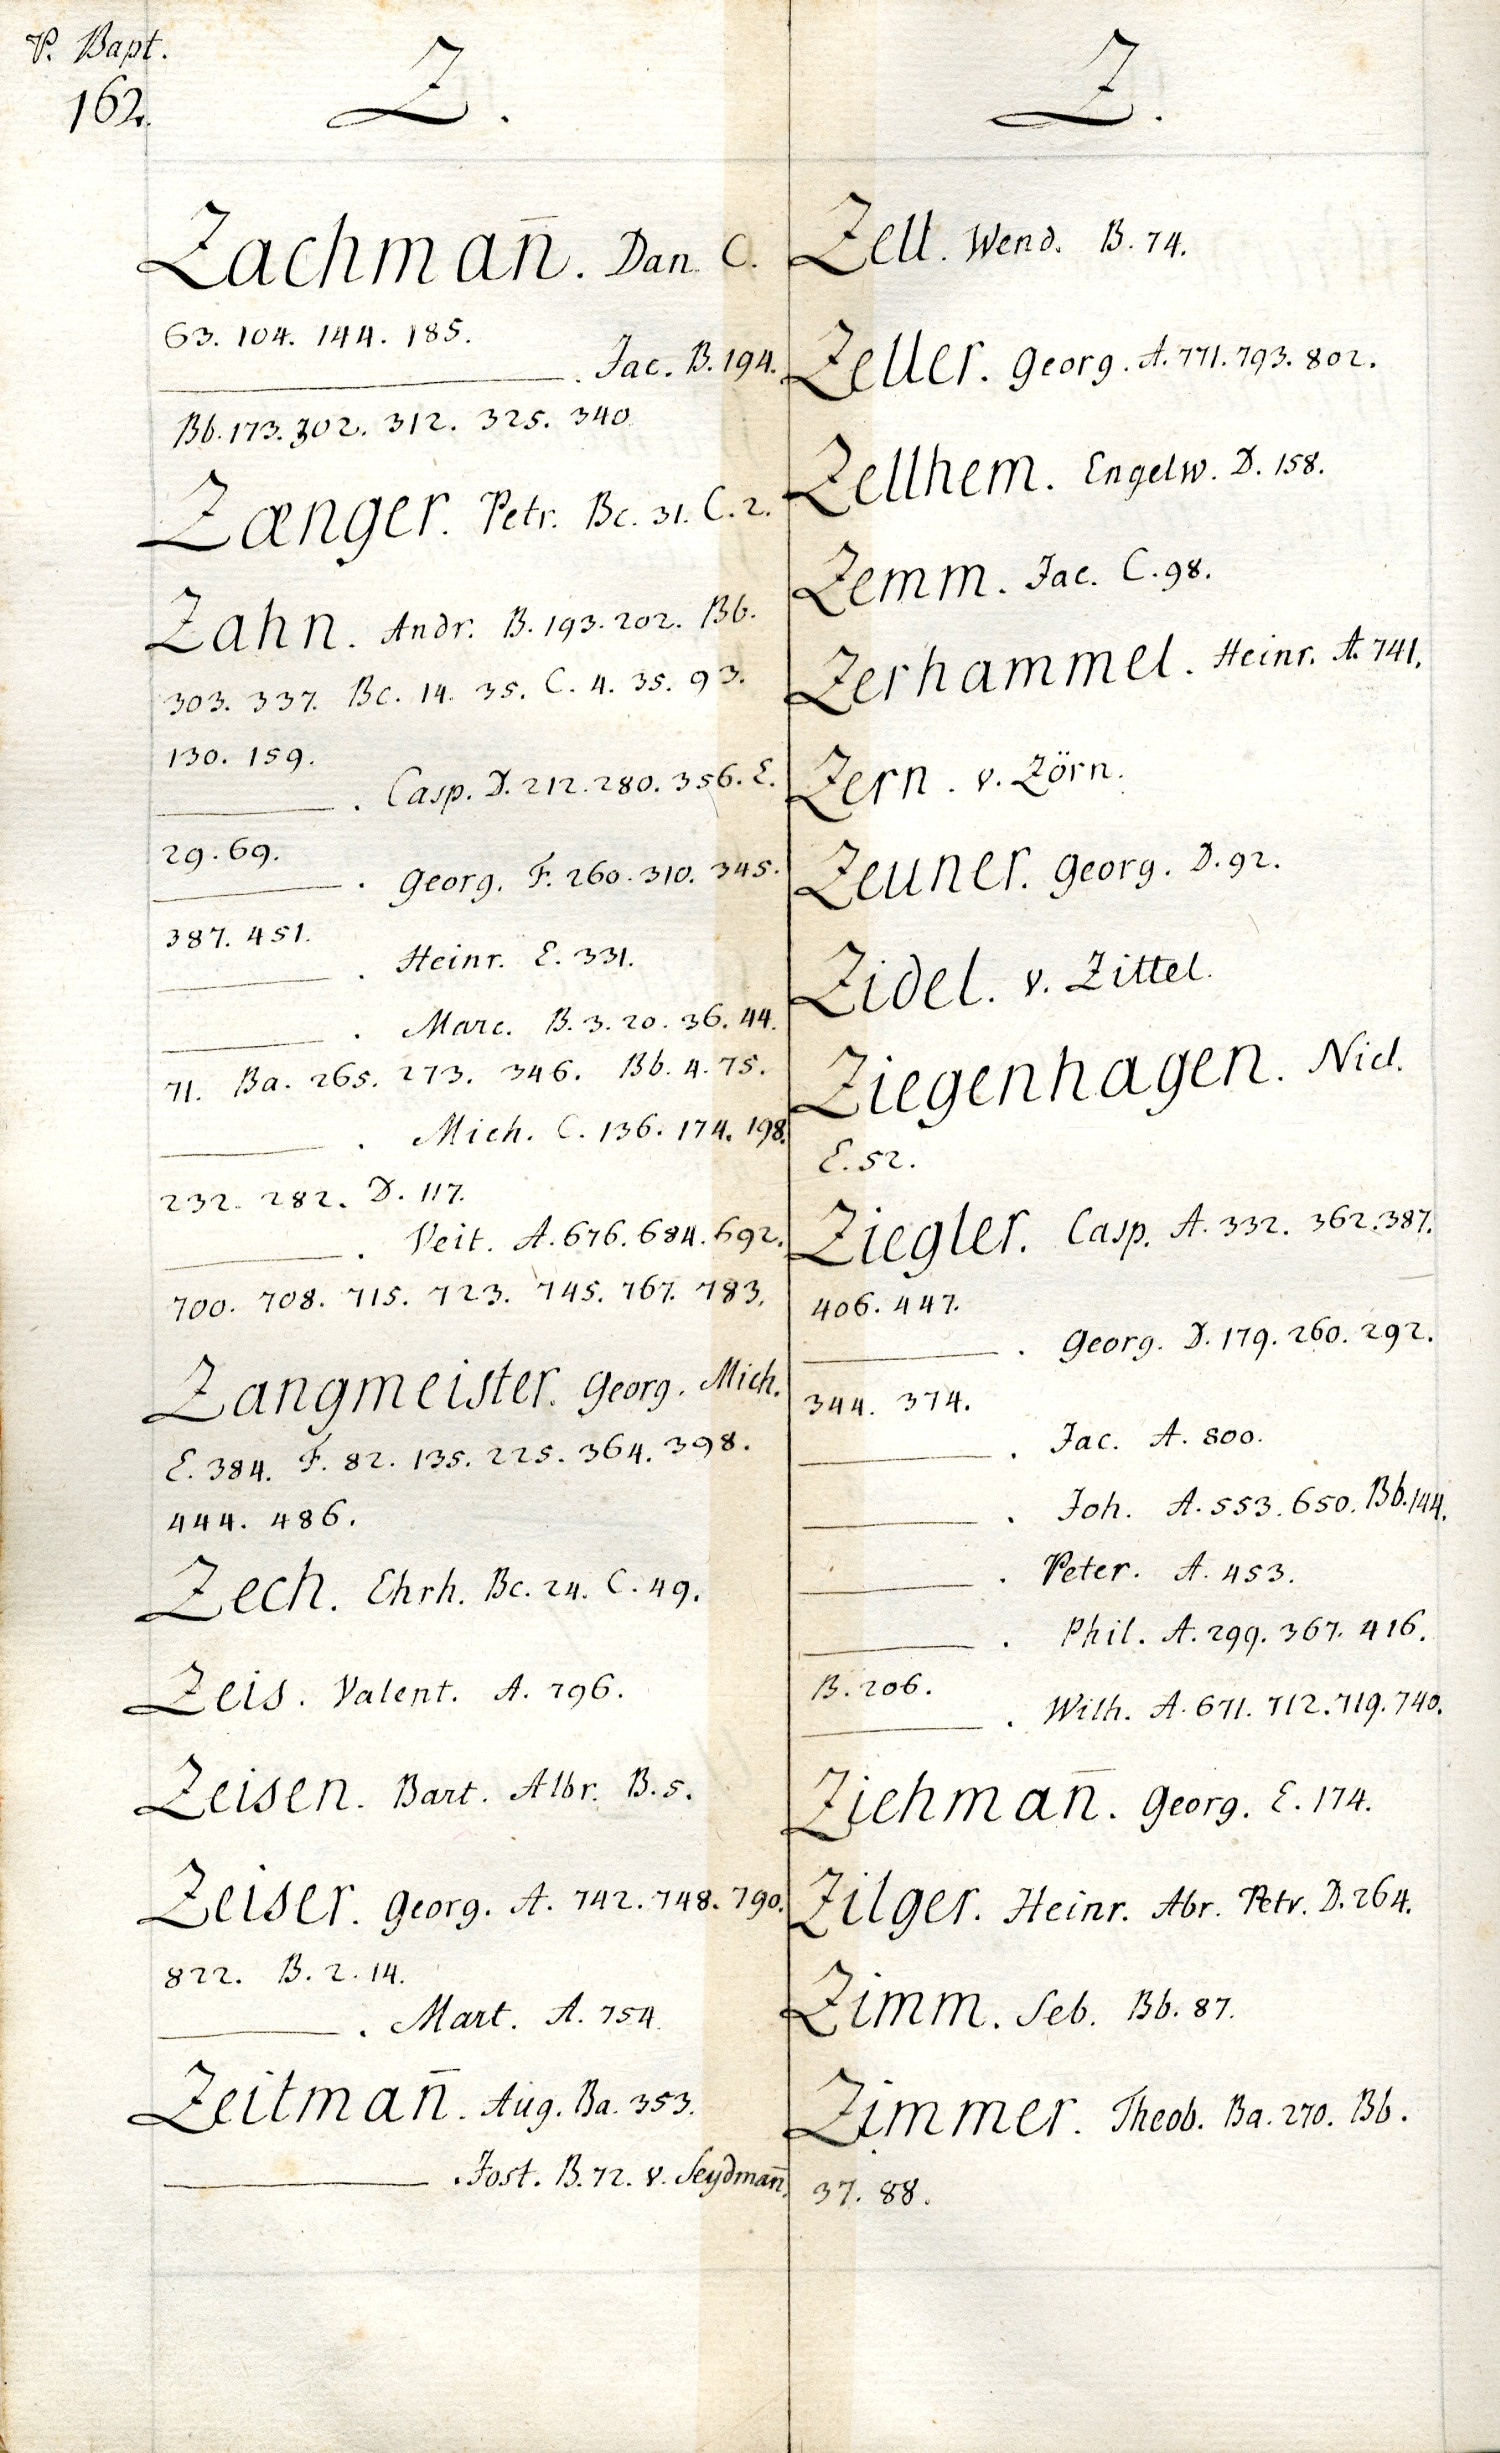 P. Bapt.
162.
Z.
Zachman̄. Dan. C.
63. 104. 144. 185.
———. Jac. B. 194.
Bb. 173. 302. 312. 325. 340.
Zænger. Petr. Bc. 31. C. 2.
Zahn. Andr. B. 193. 202. Bb.
303. 337. Bc. 14. 35. C. 4. 35. 93.
130. 159.
———. Casp. D. 212. 280. 356. E.
29. 69.
———. Georg. F. 260. 310. 345.
387. 451.
———. Heinr. E. 331.
———. Marc. B. 3. 20. 36. 44.
71. Ba. 265. 273. 346. Bb. 4. 75.
———. Mich. C. 136. 174. 198.
232. 282. D. 117.
———. Veit. A. 676. 684. 692.
700. 708. 715. 723. 745. 767. 783.
Zangmeister. Georg. Mich.
E. 384. F. 82. 135. 225. 364. 398.
444. 486.
Zech. Ehrh. Bc. 24. C. 49.
Zeis. Valent. A. 796.
Zeisen. Bart. Albr. B. 5.
Zeiser. Georg. A. 742. 748. 790.
822. B. 2. 14.
———. Mart. A. 754.
Zeitman̄. Aug. Ba. 353.
———. Jost. B. 72. v. Seydman̄.
Z.
Zell. Wend. B. 74.
Zeller. Georg. A. 771. 793. 802.
Zellhem. Engelw. D. 158.
Zemm. Jac. C. 98.
Zerhammel. Heinr. A. 741.
Zern. v. Zörn.
Zeuner. Georg. D. 92.
Zidel. v. Zittel.
Ziegenhagen. Nicl.
E. 52.
Ziegler. Casp. A. 332. 362. 387.
406. 447.
———. Georg. D. 179. 260. 292.
344. 374.
———. Jac. A. 800.
———. Joh. A. 553. 650. Bb. 144.
———. Peter. A. 453.
———. Phil. A. 299. 367. 416.
B. 206.
———. Wilh. A. 671. 712. 719. 740.
Ziehman̄. Georg. E. 174.
Zilger. Heinr. Abr. Petr. D. 264.
Zimm. Seb. Bb. 87.
Zimmer. Theob. Ba. 270. Bb.
37. 88.